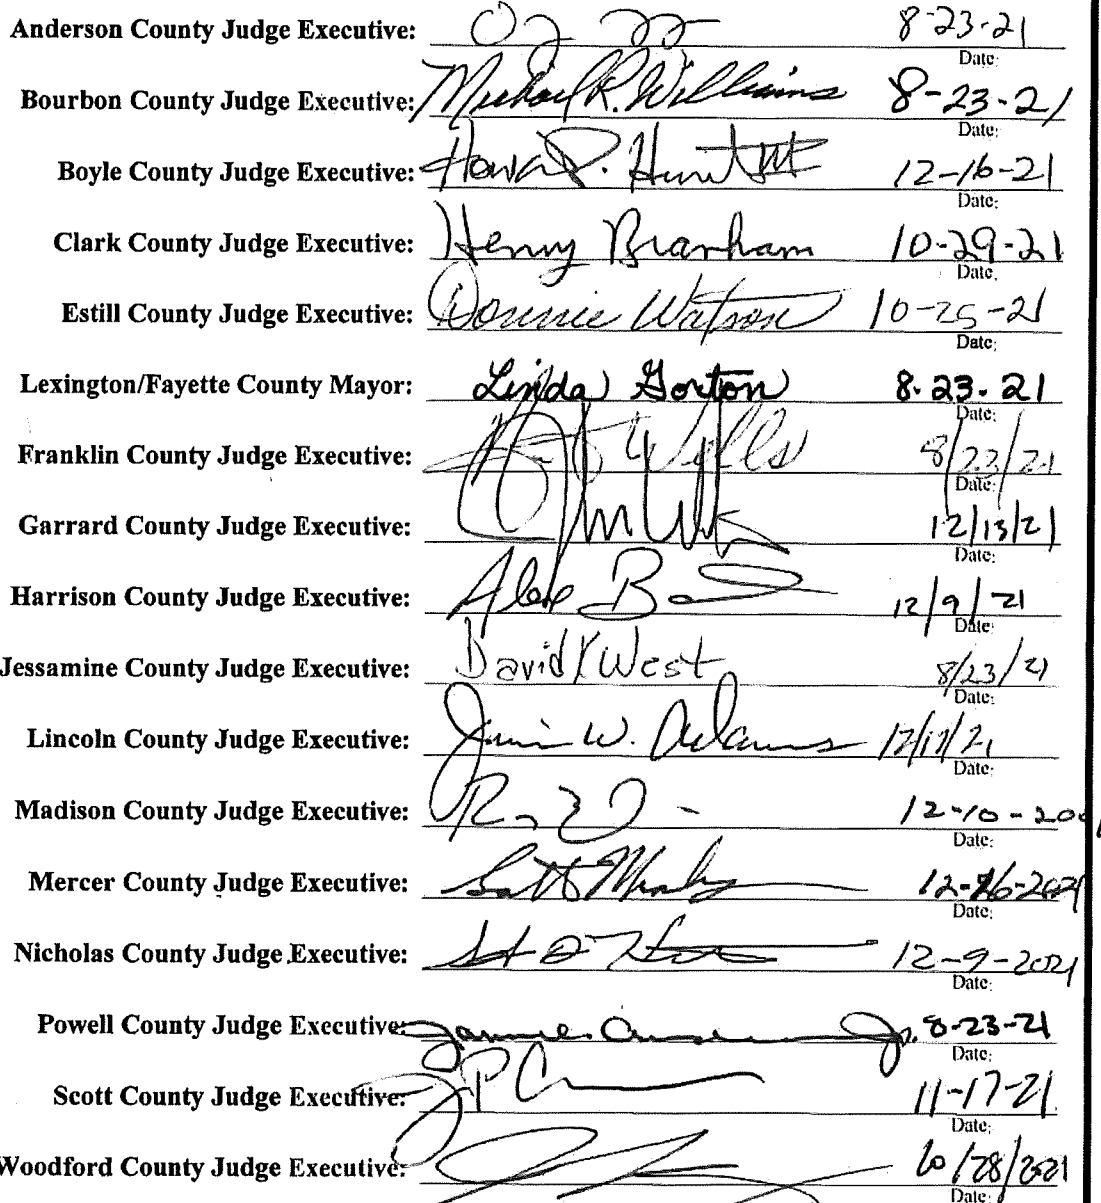 Anderson County Judge Executive: 8-23-21
Date:
Bourbon County Judge Executive: Michael R. Williams 8-23-21
Date:
Boyle County Judge Executive: Howard P. Hunt III 12-16-21
Date:
Clark County Judge Executive: Henny Branham 10-29-21
Date:
Estill County Judge Executive: Donnie Watson 10-25-21
Date:
Lexington/Fayette County Mayor: Linda Gorton 8.23.21
Date:
Franklin County Judge Executive: Wells 8/23/21
Date:
Garrard County Judge Executive: 12/13/21
Date:
Harrison County Judge Executive: Alex B 12/9/21
Date:
Jessamine County Judge Executive: David K West 8/23/21
Date:
Lincoln County Judge Executive: W. Adams
Date:
Madison County Judge Executive: 12-10-2021
Date:
Mercer County Judge Executive: Scott 12-16-2021
Date:
Nicholas County Judge Executive: 12-9-2021
Date:
Powell County Judge Executive: James Anderson Jr. 8-23-21
Date:
Scott County Judge Executive: 11-17-21
Date:
Woodford County Judge Executive: 10/28/2021
Date: